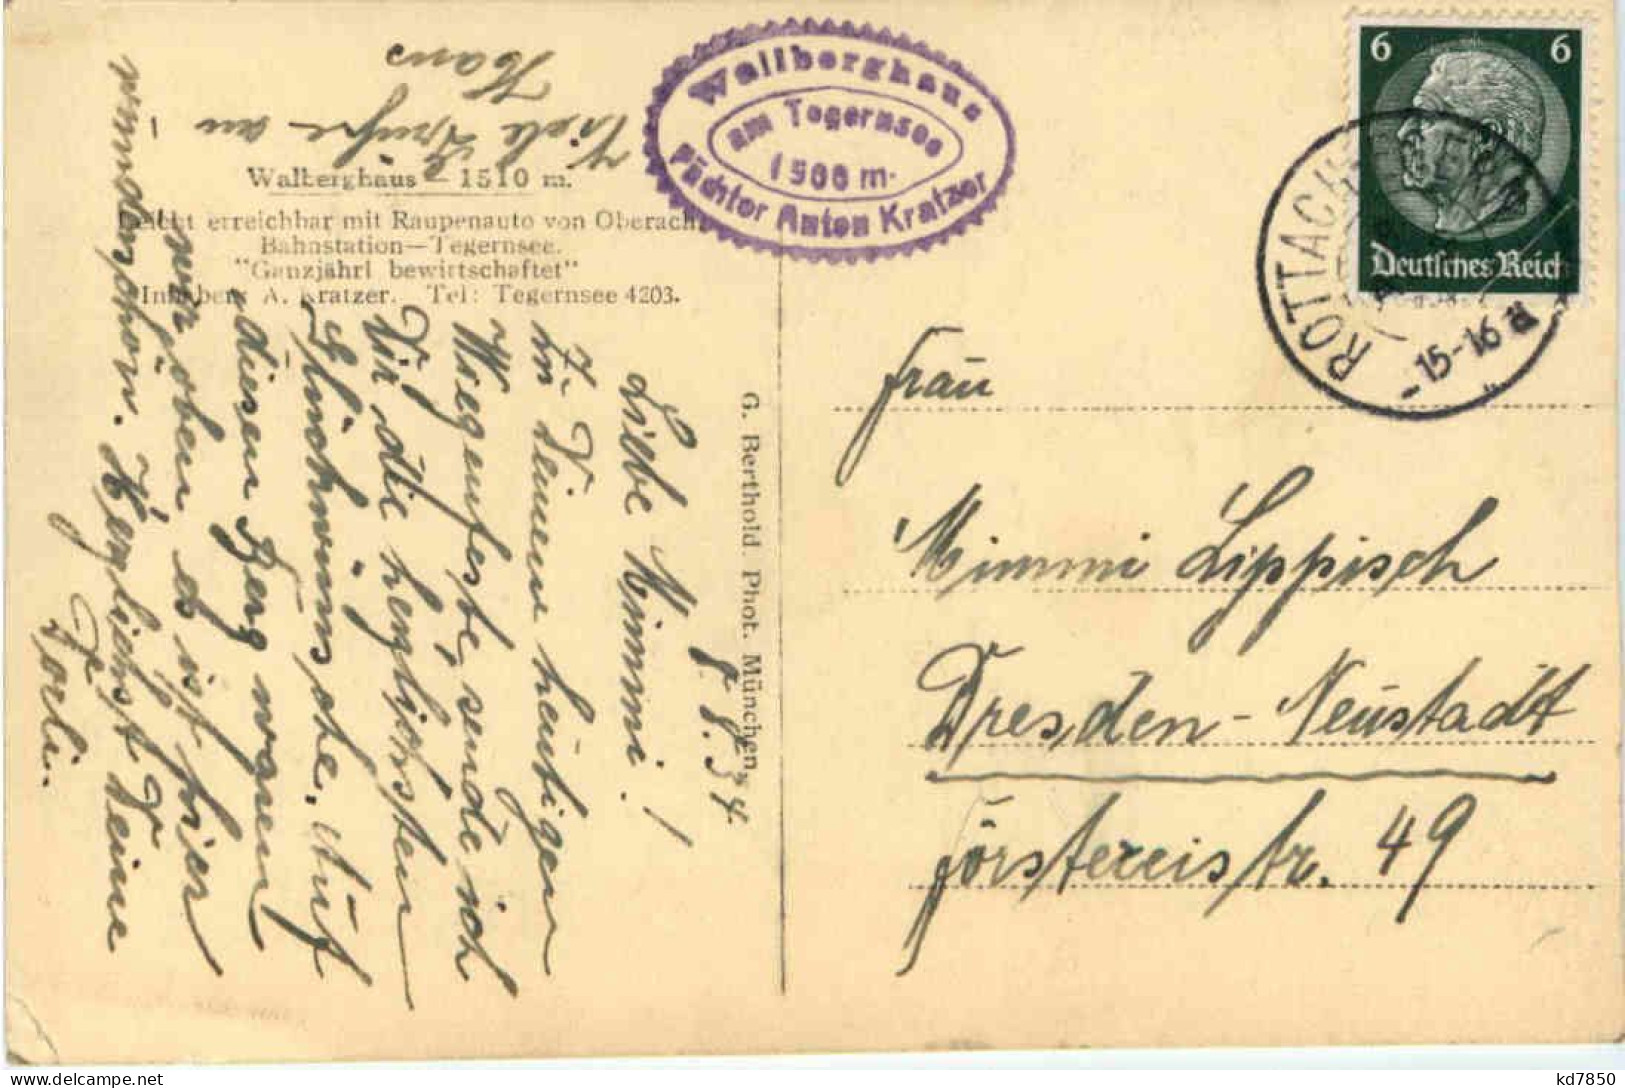 Wallberghaus
am Tegernsee
1500 m.
Pächter Anton Kratzer
6 6
Deutsches Reich
ROTTACH-EGERN
-15-16
Walberghaus — 1510 m.
Leicht erreichbar mit Raupenauto von Oberach,
Bahnstation—Tegernsee.
"Ganzjährl bewirtschaftet"
Inhaber: A. Kratzer. Tel: Tegernsee 4203.
G. Berthold Phot. München.
8.8.34
Liebe Mimmi!
Zu Deinem heutigen
Wiegenfeste, sende ich
Dir die herzlichsten
Glückwünsche. Auf
diesen Berg waren
wir oben es ist hier
wunderschön. Herzlichst Deine
Dorli.
Viele Grüße an
Hans
Frau
Mimmi Lippisch
Dresden-Neustadt
Förstereistr. 49
kd7850